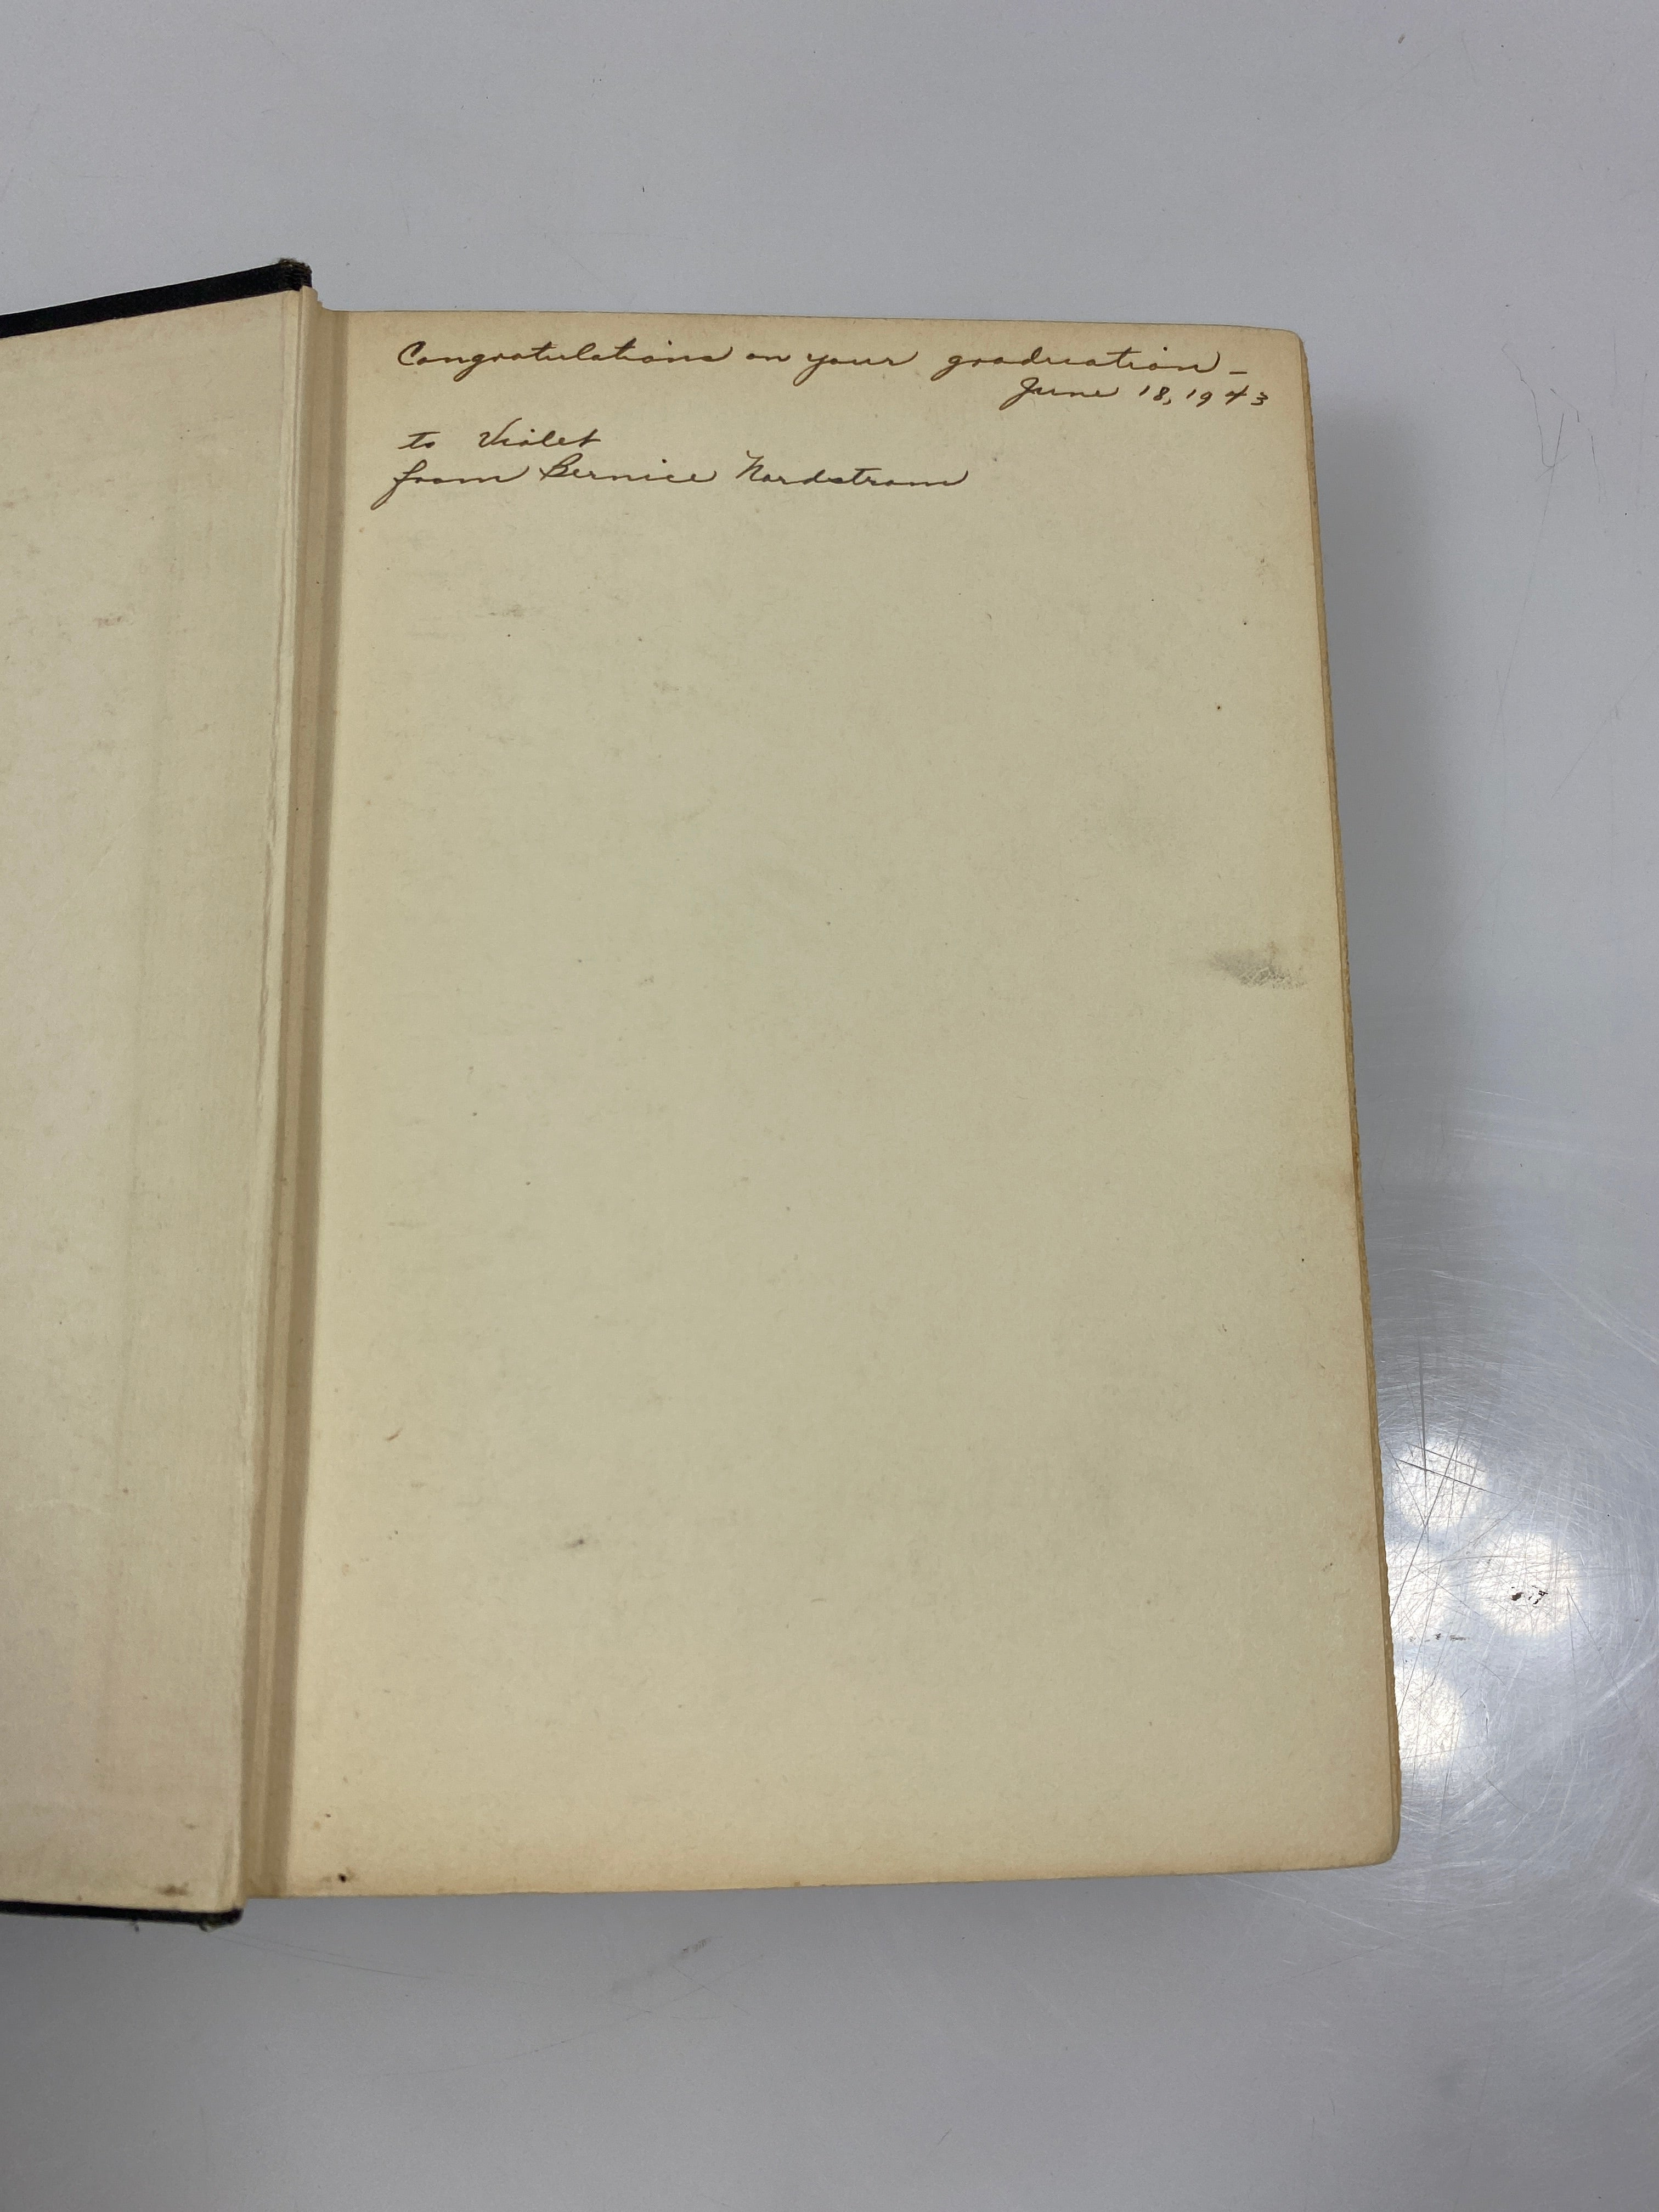 Congratulations on your graduation –
June 18, 1943
to Violet
from Bernice Nordstrom